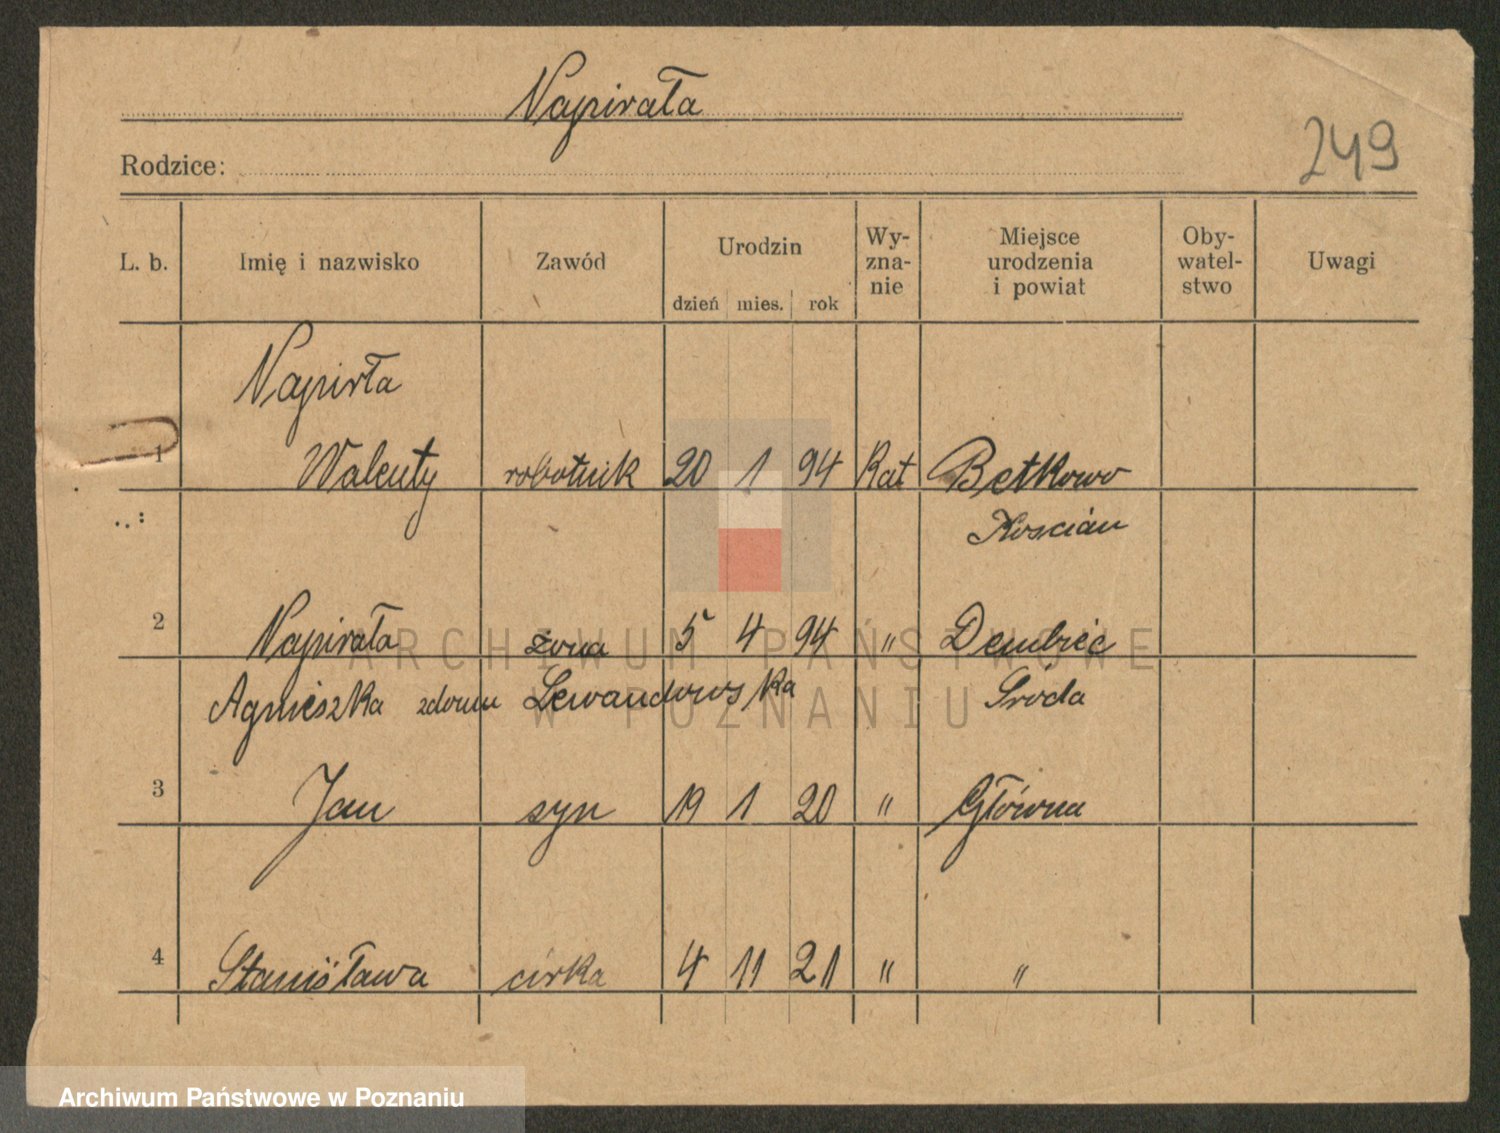 Napirała
249
Rodzice:
L. b. Imię i nazwisko Zawód Urodzin dzień mies. rok Wy-zna-nie Miejsce urodzenia i powiat Oby-watel-stwo Uwagi
Napirła
1 Walenty robotnik 20 1 94 Kat Betkowo
Kościan
2 Napirała żona 5 4 94 " Dembieć
Agnieszka zdomu Lewandowska Środa
3 Jan syn 19 1 20 " Główna
4 Stanisława cirka 4 11 21 " "
ARCHIWUM PAŃSTWOWE
W POZNANIU
Archiwum Państwowe w Poznaniu